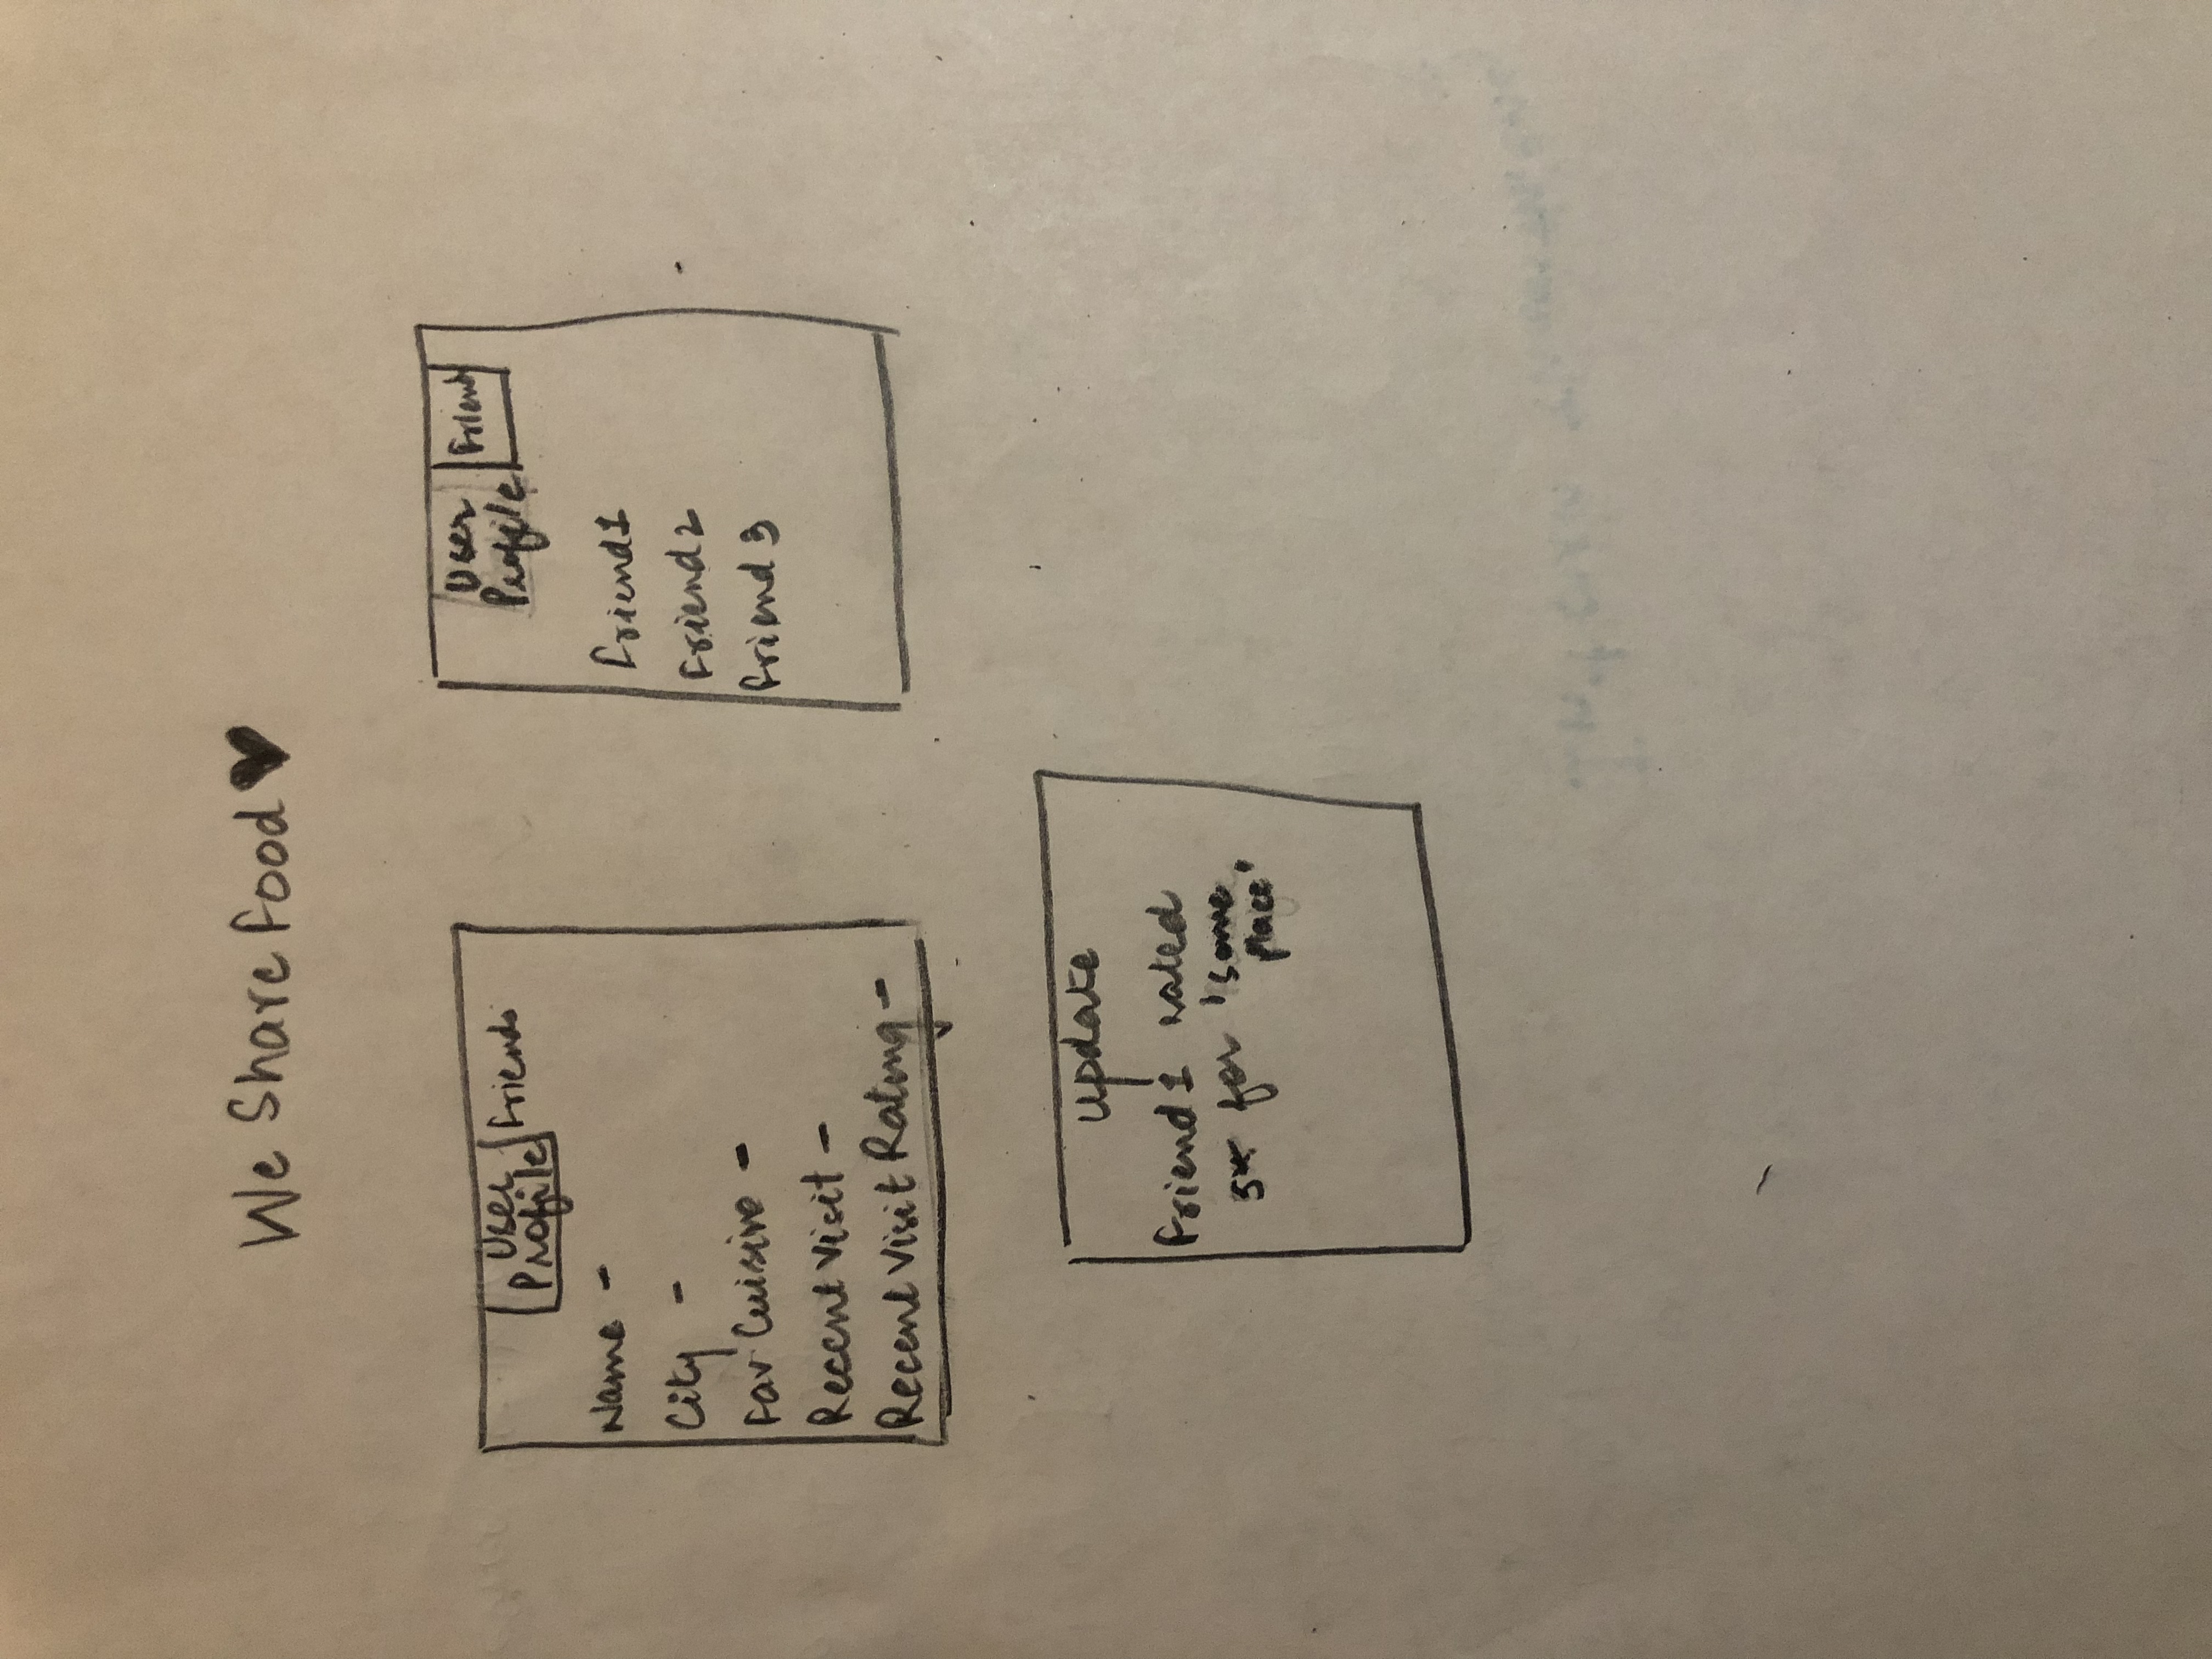 We Share Food ♥
User
Profile
Friends
Name -
City -
Fav Cuisine -
Recent Visit -
Recent Visit Rating -
User
Profile
Friend
Friend1
Friend2
Friend 3
Update
Friend 1 rated
5* for 'some
place'